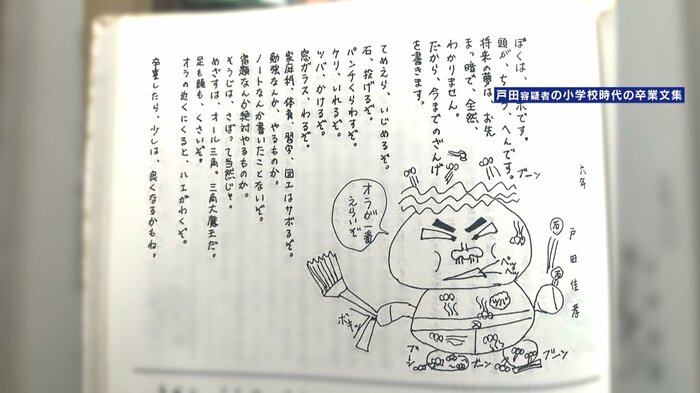 戸田容疑者の小学校時代の卒業文集
六年
戸田佳孝
ぼくは、です。
頭が、へんです。
将来の夢は、お先
まっ暗で、全然、
わかりません。
だから、今までのざんげ
を書きます。
てめえら、いじめるぞ。
石、投げるぞ。
パンチくらわすぞ。
ケリ、いれるぞ。
ツバ、かけるぞ。
窓ガラス、わるぞ。
家庭科、体育、習字、図工はサボるぞ。
勉強なんか、やるものか。
ノートなんか書いたことないぞ。
宿題なんか絶対やるものか。
そうじは、さぼって当然じゃ。
めざすは、オール三角。三角大魔王だ。
足も頭も、くさいぞ。
オラの近くにくると、ハエがわくぞ。
卒業したら、少しは、良くなるかもね。
オラが一番
えらいぞ
ブーン
石
石
ペッ
ツバ
ボキッ
ブーン
ブーン